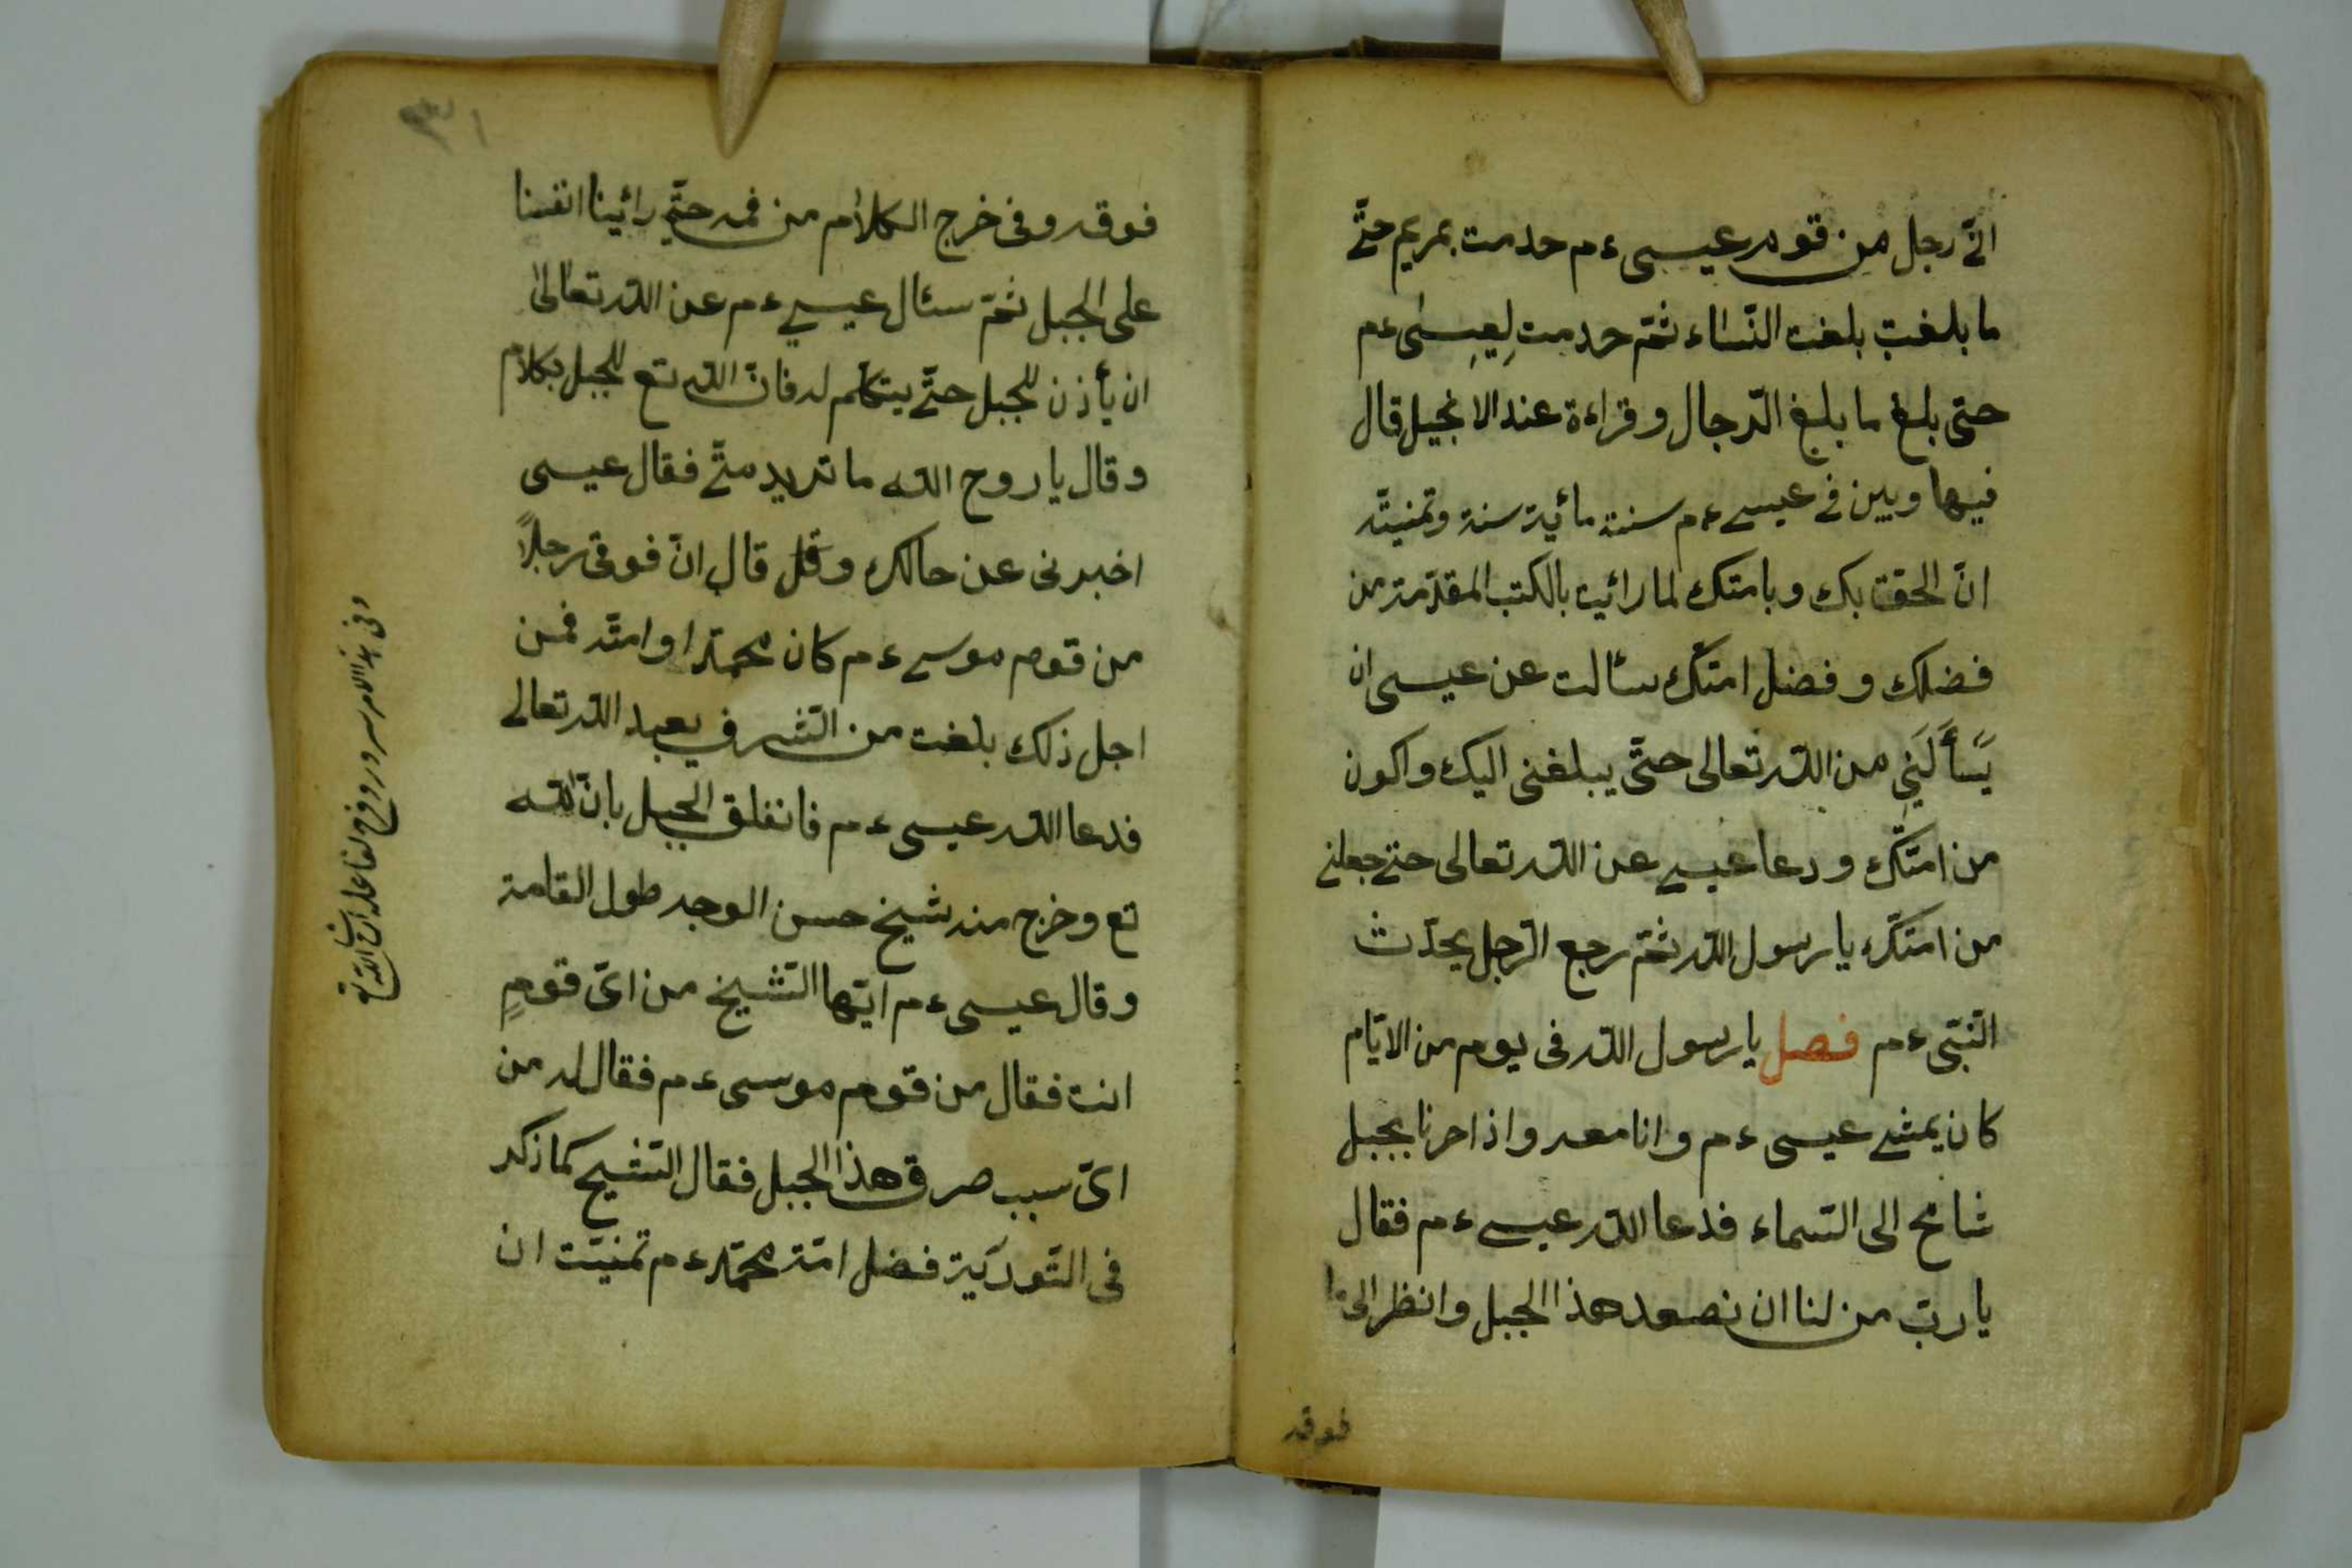 انّى رجل من قوم عيسى ءم حدمت بمريم حتّى
ما بلغت بلغت النّساء ثمّ حدمت لِعِيسٰى ءم
حتى بلغ ما بلغ الرّجال وقراءة عند الانجيل قال
فيها وبين فى عيسى ءم سنة مائية سنة وتمنيتّه
انّ الحقّ بك وبامتك لما رائيت بالكتب المقدّمة من
فضلك وفضل امتّك سئالت عن عيسى ان
يَسأَلَنِي من اللّه تعالى حتّى يبلغنى اليك واكون
من امتّك ودعا عيسى عن اللّه تعالى حتى جعلنى
من امتّك يا رسول اللّه ثمّ رجع الرّجل يحدّث
النّبّى ءم فصل يا رسول اللّه فى يوم من الايّام
كان يمشى عيسى ءم وانا معه واذا مرنا بجبل
شامح الى السّماء فدعا اللّه عيسى ءم فقال
يا ربّ من لنا ان نصعد هذا الجبل وانظر الى
فوقه
فوقه وفى خرج الكلام من فمه حتّى رائينا انفسنا
على الجبل ثمّ سئال عيسى ءم عن اللّه تعالىٰ
ان يأذن للجبل حتّى يتكلّم له فانّ اللّه تع للجبل بكلام
وقال يا روح اللّه ما تريد منّى فقال عيسى
اخبرنى عن حالك وقل قال انّ فوقى رجلاً
من قوم موسى ءم كان محمّدا وامتّه فمن
اجل ذلك بلغت من الشّرف بعبد اللّه تعالى
فدعا اللّه عيسى ءم فانفلق الجبل باذن اللّه
تع وخرج منه شيخ حسن الوجه طول القامة
وقال عيسى ءم ايّها الشّيخ من اىّ قومٍ
انت فقال من قوم موسى ءم فقال له من
اىّ سبب صرق هذا الجبل فقال الشّيح كما ذكر
فى التّوريَة فضل امّة محمّد ءم تمنيّت ان